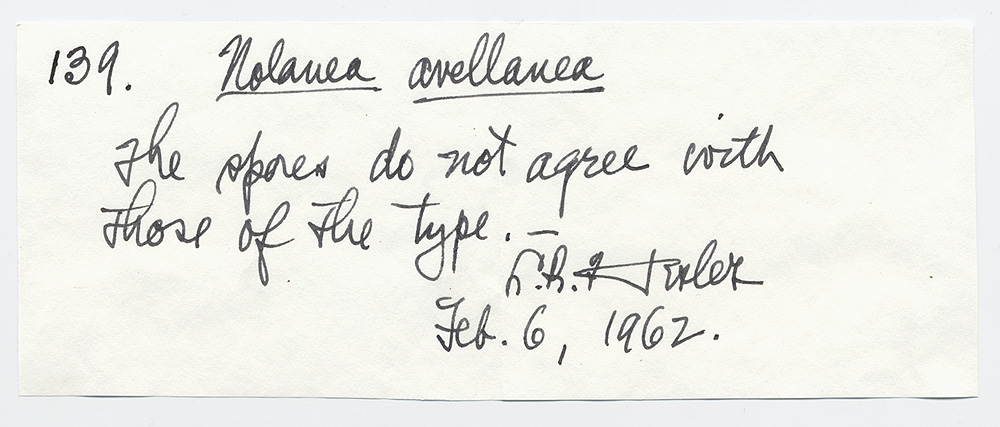 139. Nolanea avellanea
The spores do not agree with
those of the type. –
L.R. Hesler
Feb. 6, 1962.